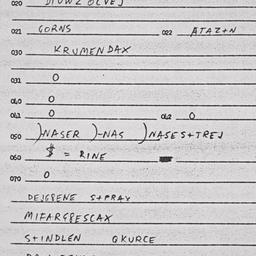 020
021 GORNS 022 ATAZ+N
030 KRUMENDAX
031 0
040 0
041 0 042 0
050 )NASER )-NAS )NASES+TREJ
060 $ = RINE
070 0
DEJGPENE S+PRAY
MIFARGPESCAX
S+INDLEN GKURCE